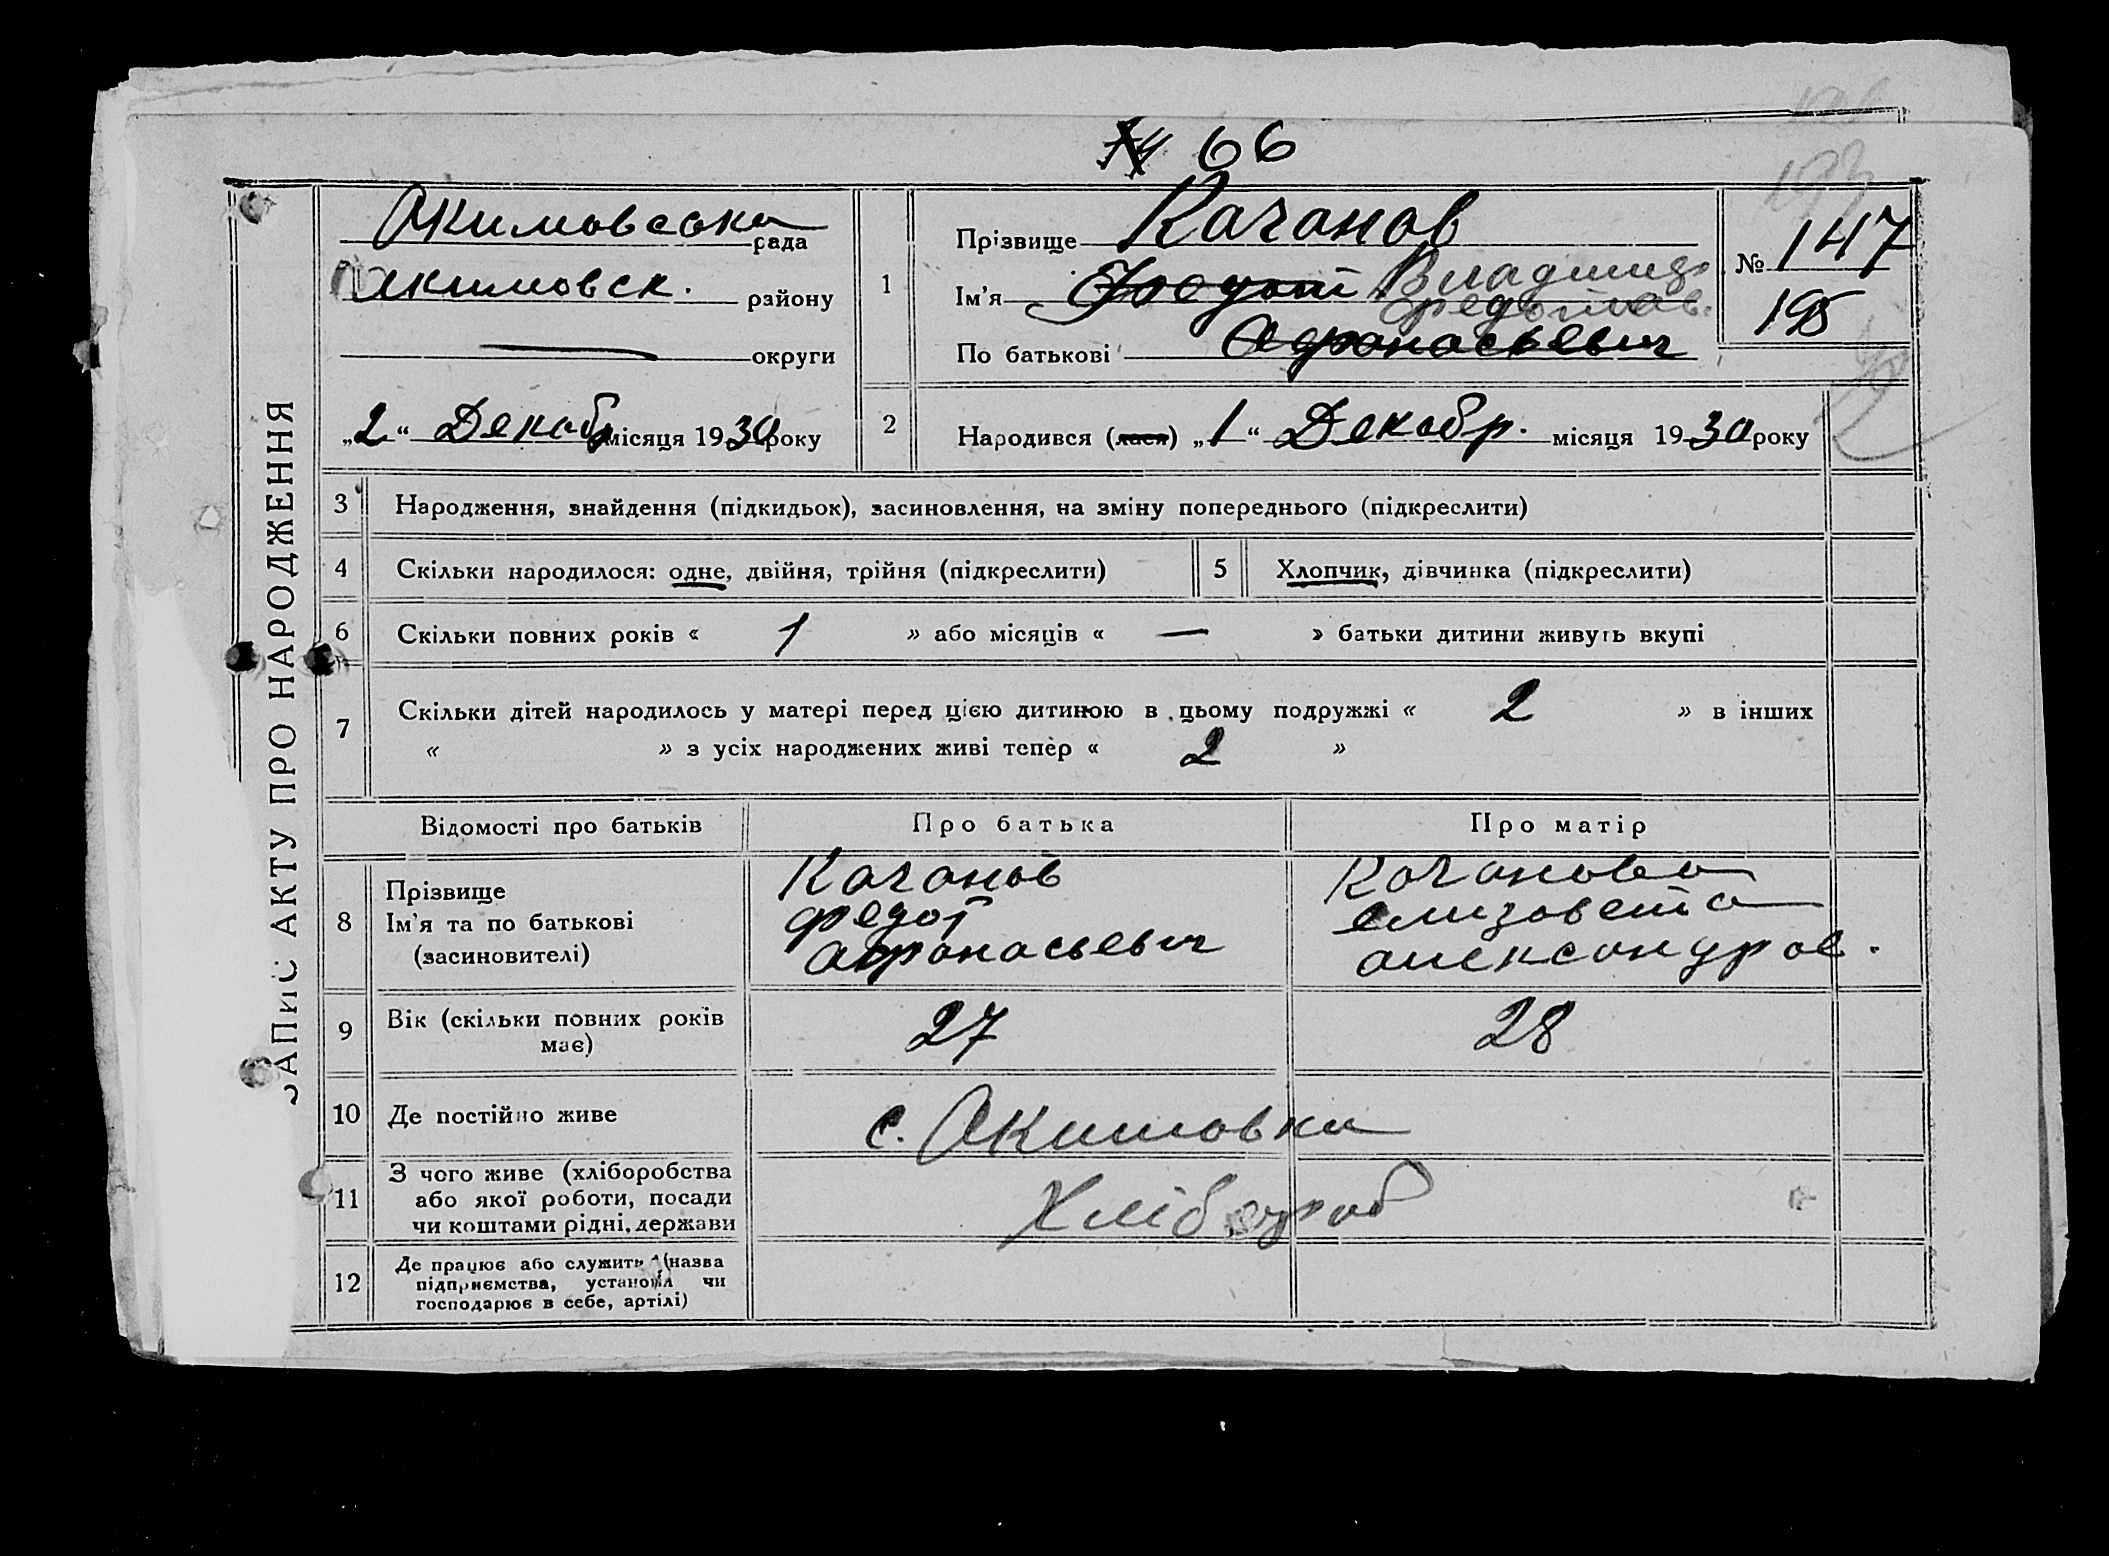 66
Акимовська рада
Акимовск. району
округи
„2“ Декабр місяця 1930 року
ЗАПИС АКТУ ПРО НАРОДЖЕННЯ
1
Прізвище Качанов
Ім'я Федот Владимир
Федотов.
По батькові Афанасьевич
№ 147
195
193
2
Народився (лася) „1“ Декабр. місяця 1930 року
3 Народження, знайдення (підкидьок), засиновлення, на зміну попереднього (підкреслити)
4 Скільки народилося: одне, двійня, трійня (підкреслити) 5 Хлопчик, дівчинка (підкреслити)
6 Скільки повних років « 1 » або місяців « — » батьки дитини живуть вкупі
7 Скільки дітей народилось у матері перед цією дитиною в цьому подружжі « 2 » в інших
« » з усіх народжених живі тепер « 2 »
Відомості про батьків Про батька Про матір
8
Прізвище
Ім'я та по батькові
(засиновителі)
Качанов
Федот
Афанасьевич
Качанова
Елизовета
Александров.
9 Вік (скільки повних років має) 27 28
10 Де постійно живе с. Акимовка
11
З чого живе (хліборобства
або якої роботи, посади
чи коштами рідні, держави
Хлібороб
12
Де працює або служить (назва
підприємства, установи чи
господарює в себе, артілі)